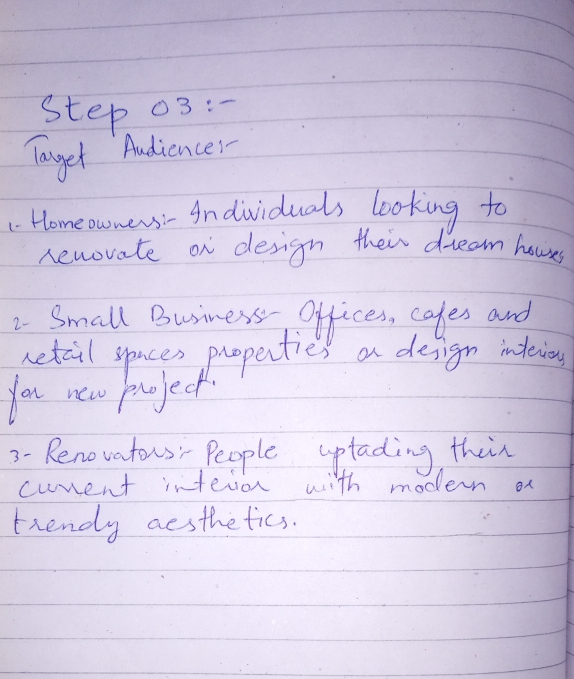 Step 03:-
Target Audience:-
1- Homeowners:- Individuals looking to
renovate or design their dream houses
2- Small Business:- Offices, cafes and
retail spaces properties or design interiors
for new project.
3- Renovators:- People uptading their
current interior with modern or
trendy aesthetics.